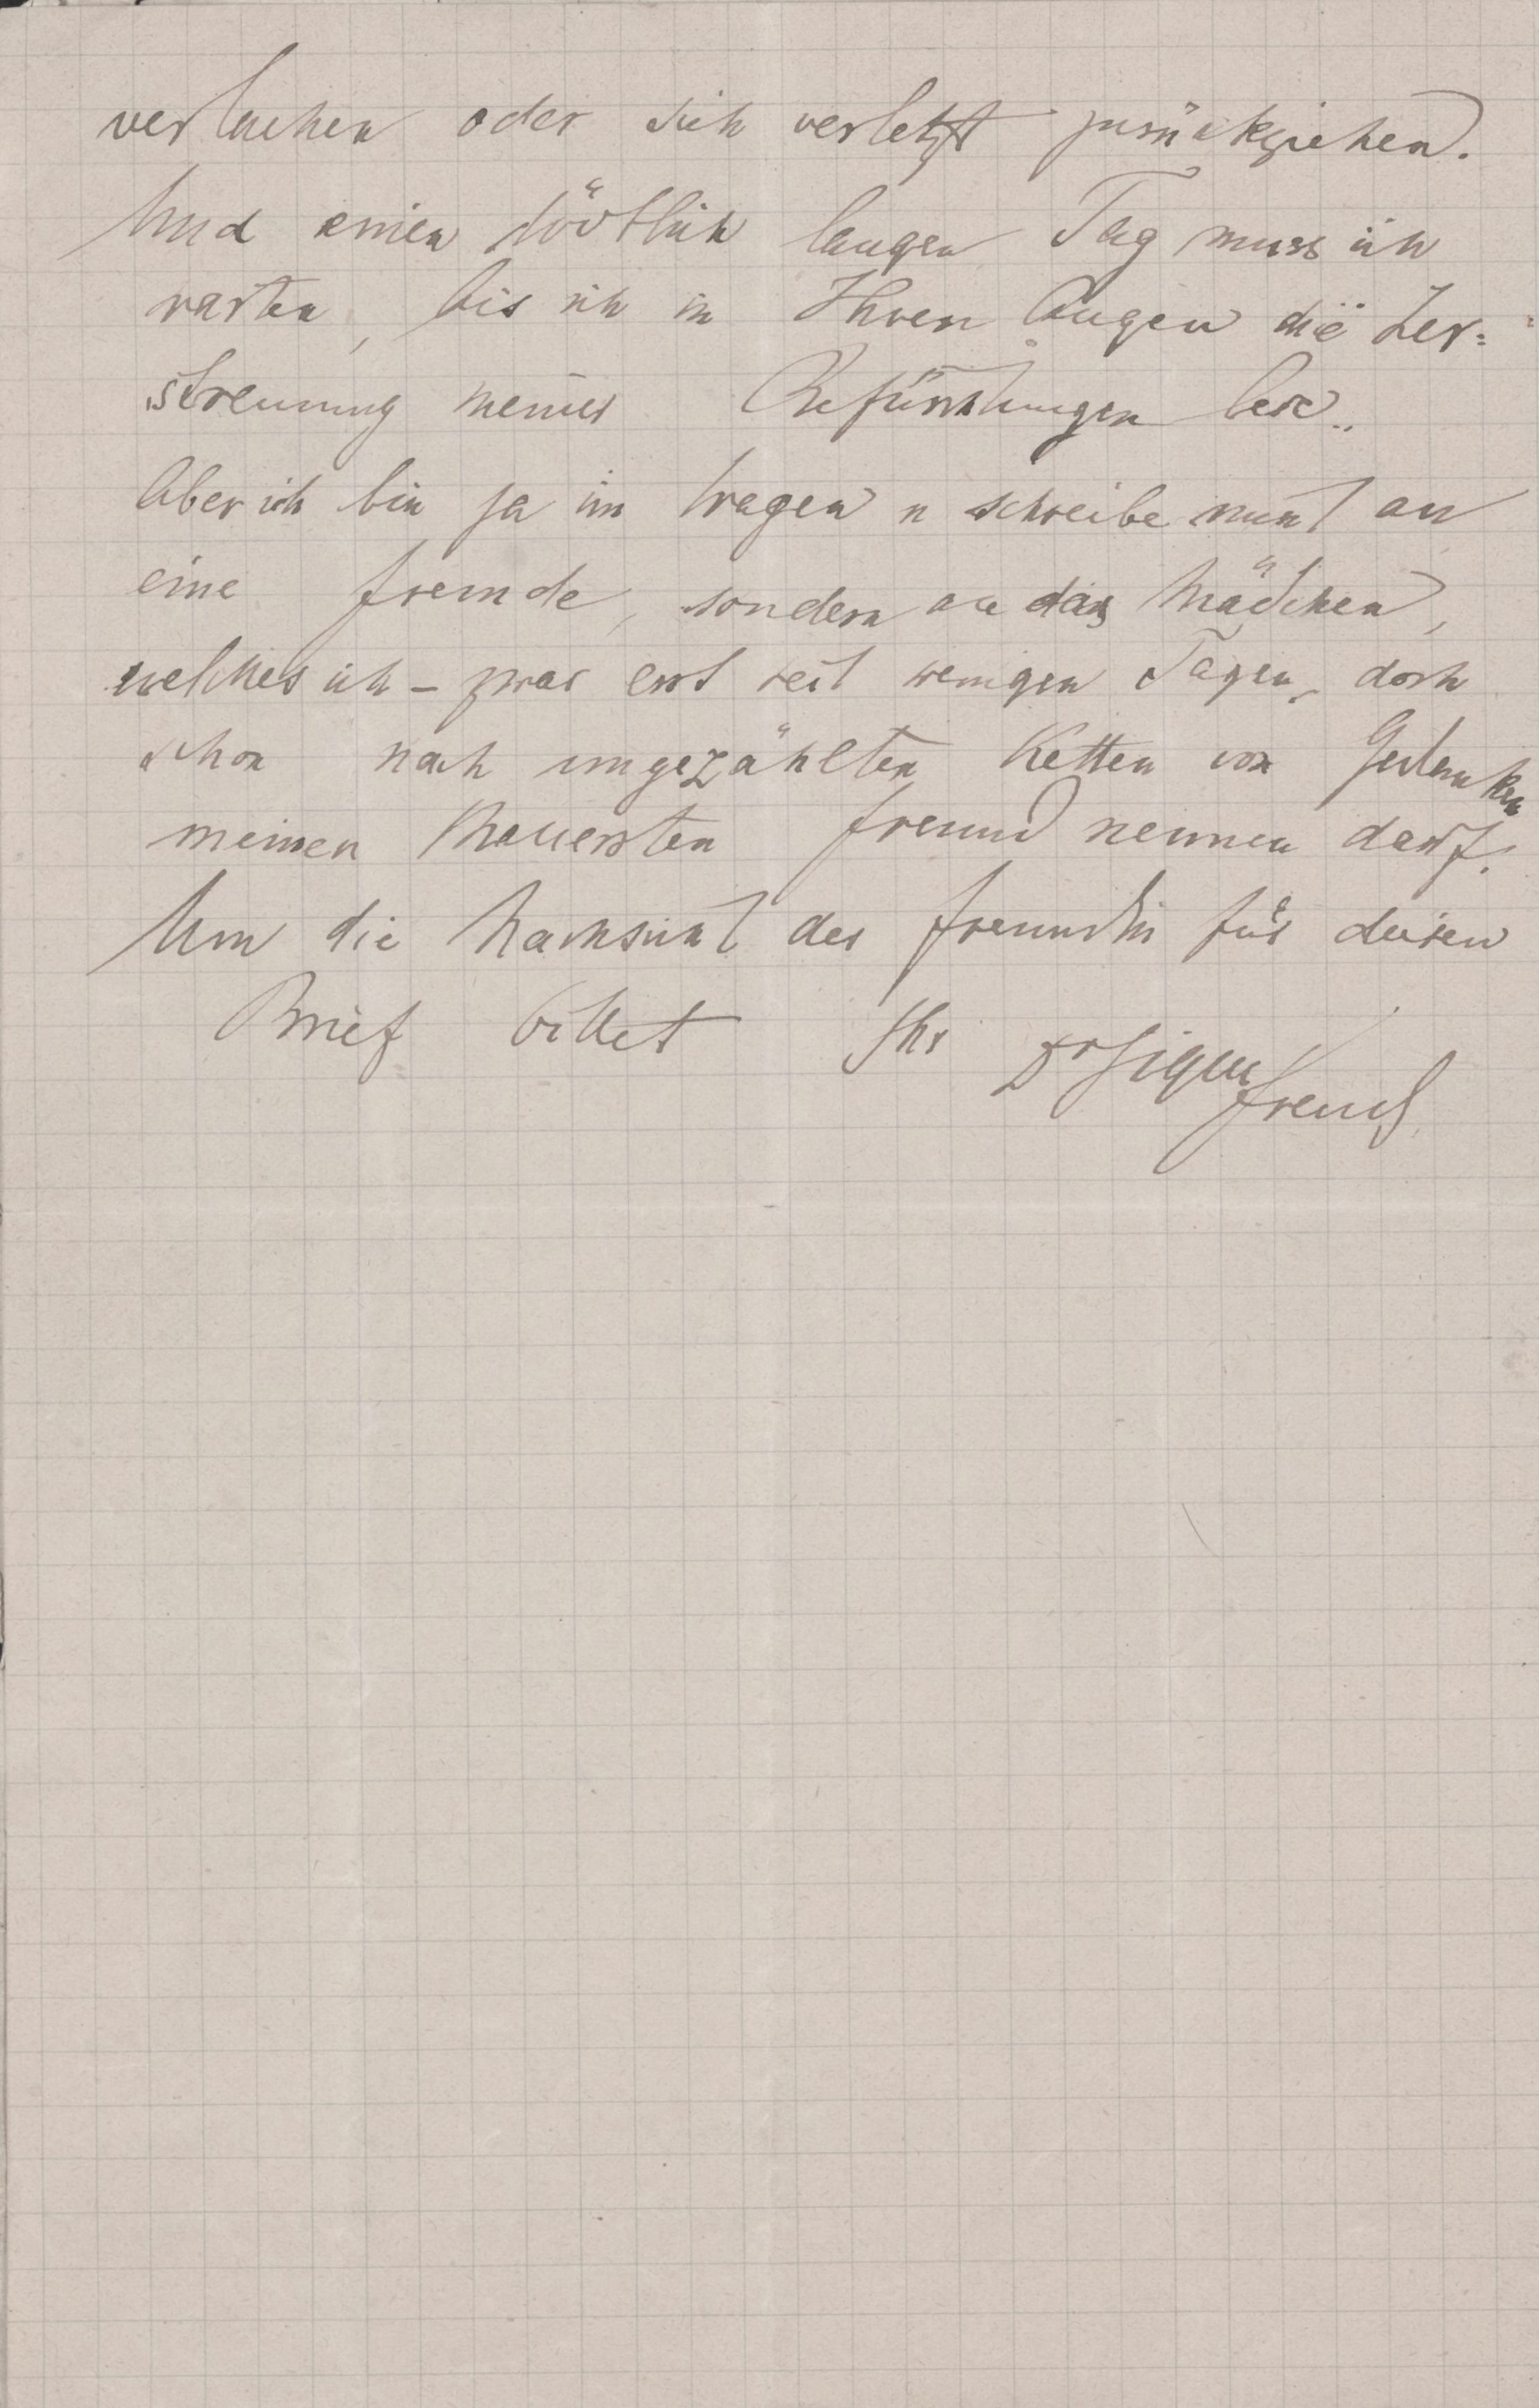 verlachen oder sich verletzt zurückziehen.
Und einen tödtlich langen Tag muss ich
warten, bis ich in Ihren Augen die Zer=
streuung meiner Befürchtungen lese..
Aber ich bin ja im Wagen u schreibe nicht an
eine Fremde, sondern an das Mädchen,
welches ich – zwar erst seit wenigen Tagen, doch
schon nach ungezählten Ketten von Gedanken
meinen theuersten Freund nennen darf.
Um die Nachsicht der Freundin für diesen
Brief bittet Ihr Dr Sigm
Freud